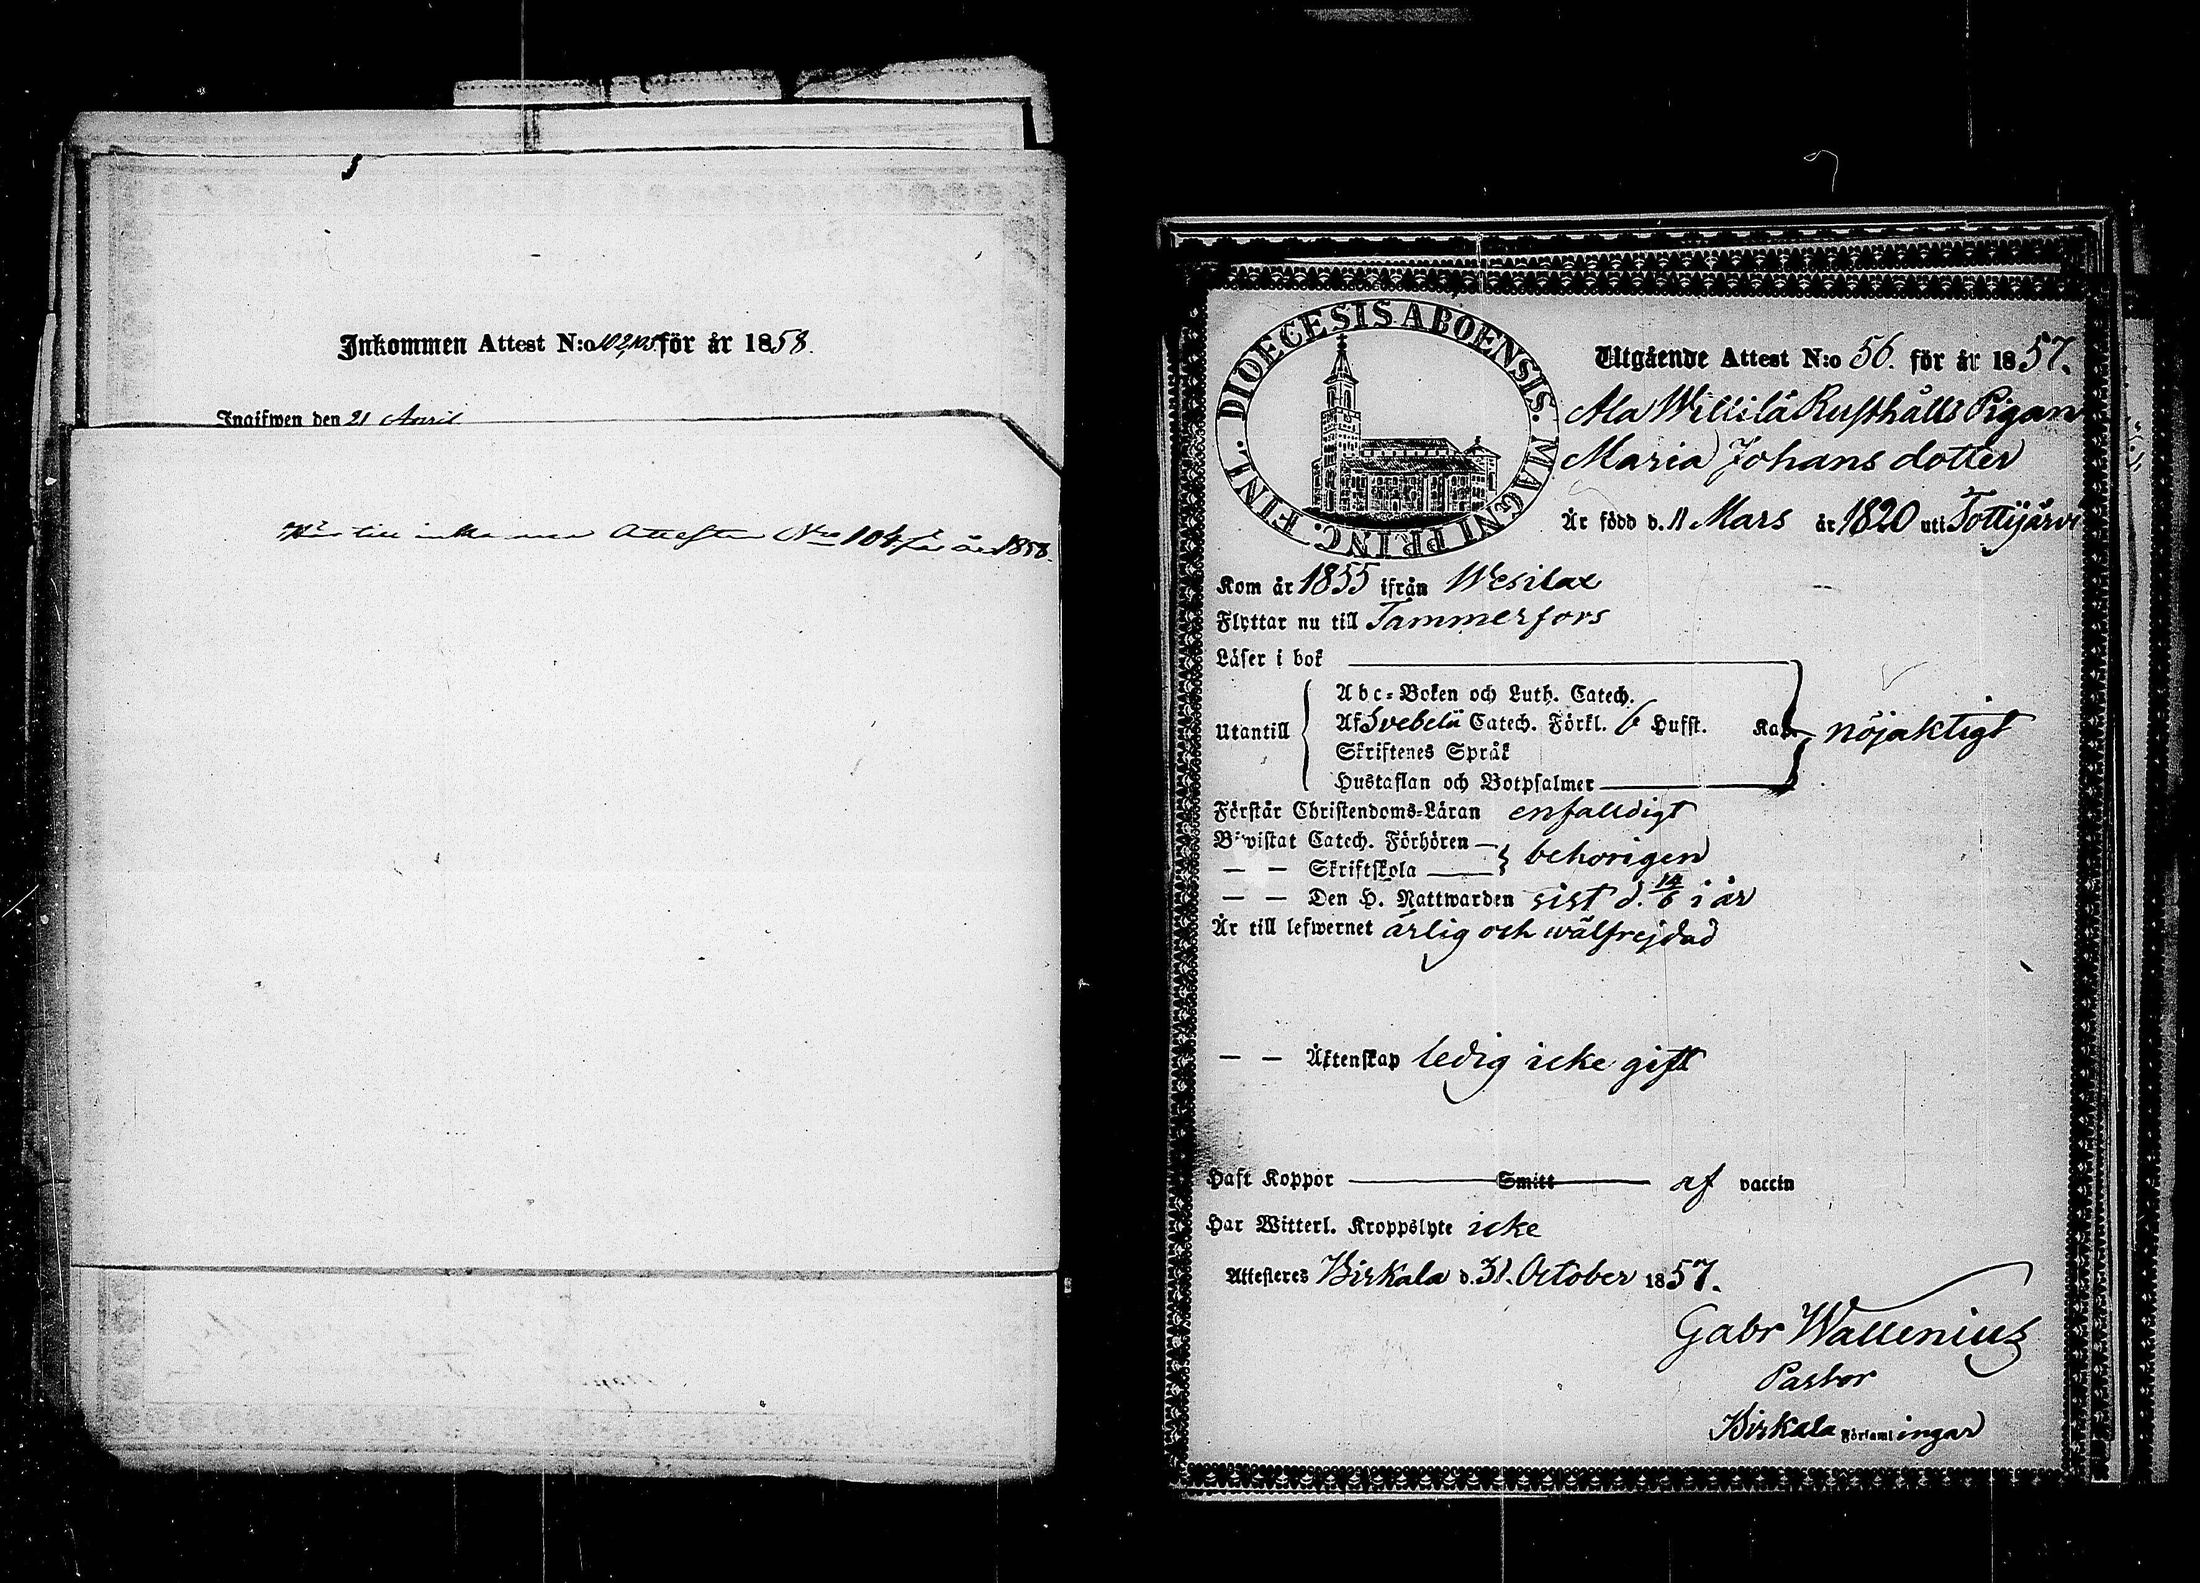 Inkommen Attest N:o för år 1858.
Ingifwen den 21 April
Hör till Attesten Nro 104 för år 1858.
DIOECESIS ABOENSIS. MAGNI PRINC. FINL.
Utgående Attest N:o 56. för år 1857.
Ala Willilä Rusthålls Pigan
Maria Johans dotter
Är född d. 11 Mars år 1820 uti Tottijärvi
Kom år 1855 ifrån Wesilax
Flyttar nu till Tammerfors
Läser i bok
Abc-Boken och Luth. Catech.
Utantill Af Svebelii Catech. Förkl. 6 Hufst. Kan nöjaktigt
Skriftenes Språk
Hustaflan och Botpsalmer
Förstår Christendoms-Läran enfalldigt
Biwistat Catech. Förhören
— — Skriftskola behörigen
— — Den H. Nattwarden sist d. 14/6 i år
Är till lefwernet ärlig och wälfrejdad
— — Äktenskap ledig icke gift
Haft Koppor Smitt af vaccin
Har Witterl. Kroppslyte icke
Attesteres Birkala d. 31. October 1857.
Gabr Wallenius
Pastor
Birkala Församlingar